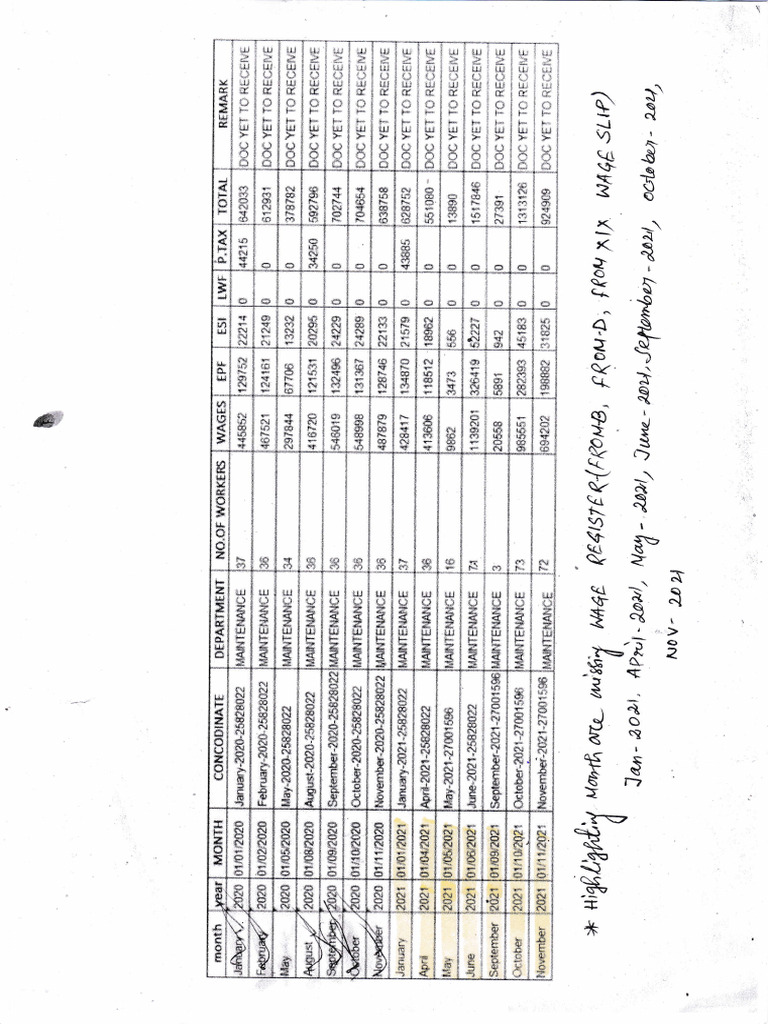 month year MONTH CONCODINATE DEPARTMENT NO.OF WORKERS WAGES EPF ESI LWF P.TAX TOTAL REMARK
January 2020 01/01/2020 January-2020-25828022 MAINTENANCE 37 445852 129752 22214 0 44215 642033 DOC YET TO RECEIVE
February 2020 01/02/2020 February-2020-25828022 MAINTENANCE 36 467521 124161 21249 0 0 612931 DOC YET TO RECEIVE
May 2020 01/05/2020 May-2020-25828022 MAINTENANCE 34 297844 67706 13232 0 0 378782 DOC YET TO RECEIVE
August 2020 01/08/2020 August-2020-25828022 MAINTENANCE 36 416720 121531 20295 0 34250 592796 DOC YET TO RECEIVE
September 2020 01/09/2020 September-2020-25828022 MAINTENANCE 36 546019 132496 24229 0 0 702744 DOC YET TO RECEIVE
October 2020 01/10/2020 October-2020-25828022 MAINTENANCE 36 548998 131367 24289 0 0 704654 DOC YET TO RECEIVE
November 2020 01/11/2020 November-2020-25828022 MAINTENANCE 36 487879 128746 22133 0 0 638758 DOC YET TO RECEIVE
January 2021 01/01/2021 January-2021-25828022 MAINTENANCE 37 428417 134870 21579 0 43885 628752 DOC YET TO RECEIVE
April 2021 01/04/2021 April-2021-25828022 MAINTENANCE 36 413606 118512 18962 0 0 551080 DOC YET TO RECEIVE
May 2021 01/05/2021 May-2021-27001596 MAINTENANCE 16 9862 3473 556 0 0 13890 DOC YET TO RECEIVE
June 2021 01/06/2021 June-2021-25828022 MAINTENANCE 1139201 326419 52227 0 0 1517846 DOC YET TO RECEIVE
September 2021 01/09/2021 September-2021-27001596 MAINTENANCE 3 20558 5891 942 0 0 27391 DOC YET TO RECEIVE
October 2021 01/10/2021 October-2021-27001596 MAINTENANCE 73 985551 282393 45183 0 0 1313126 DOC YET TO RECEIVE
November 2021 01/11/2021 November-2021-27001596 MAINTENANCE 72 694202 198882 31825 0 0 924909 DOC YET TO RECEIVE
* Highlighting Month are missing WAGE REGISTER-(FROM-B, FROM-D, FROM XIX WAGE SLIP)
Jan-2021, April-2021, May-2021, June-2021, September-2021, October-2021,
NOV-2021